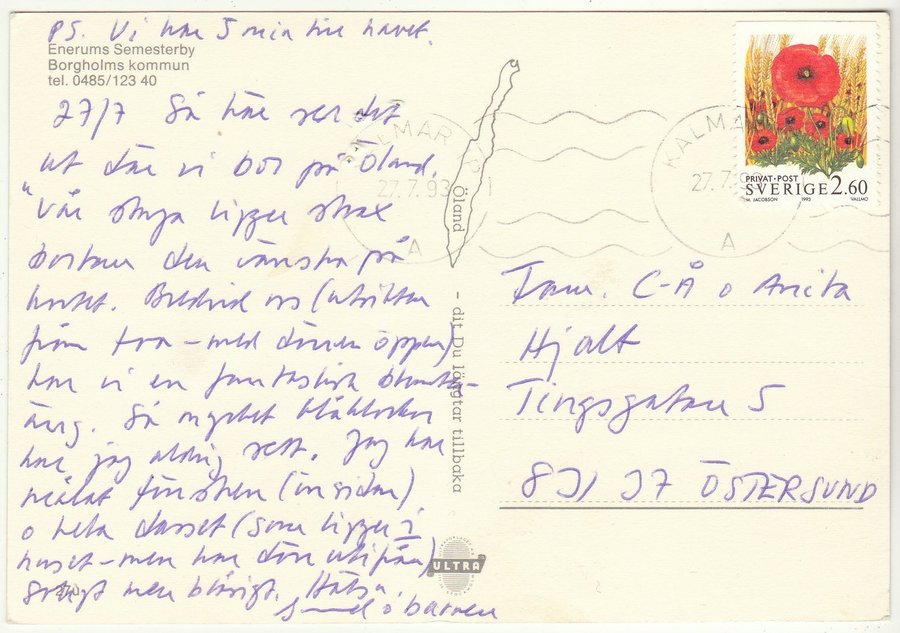 PS. Vi har 5 min till havet.
Enerums Semesterby
Borgholms kommun
tel. 0485/123 40
27/7 Så här ser det
ut där vi bor på Öland.
"Vår stuga ligger strax
bortom den vänstra på
kortet. Bredvid oss (utsikten
från tra – med dörren öppen)
har vi en fantastisk blomster-
äng. Så mycket blåklockor
har jag aldrig sett. Jag har
målat fönstren (insidan)
o hela dasset (som ligger i
huset – men har dörr utifrån)
Soligt men blåsigt. Hälsn.
o barnen
Öland
- dit Du längtar tillbaka
ULTRA
KALMAR
27.7.93
A
KALMAR
27.7.93
A
PRIVAT·POST
SVERIGE 2.60
M. JACOBSON 1993 VALLMO
Fam. C-Å o Anita
Hjalt
Tingsgatan 5
831 37 ÖSTERSUND